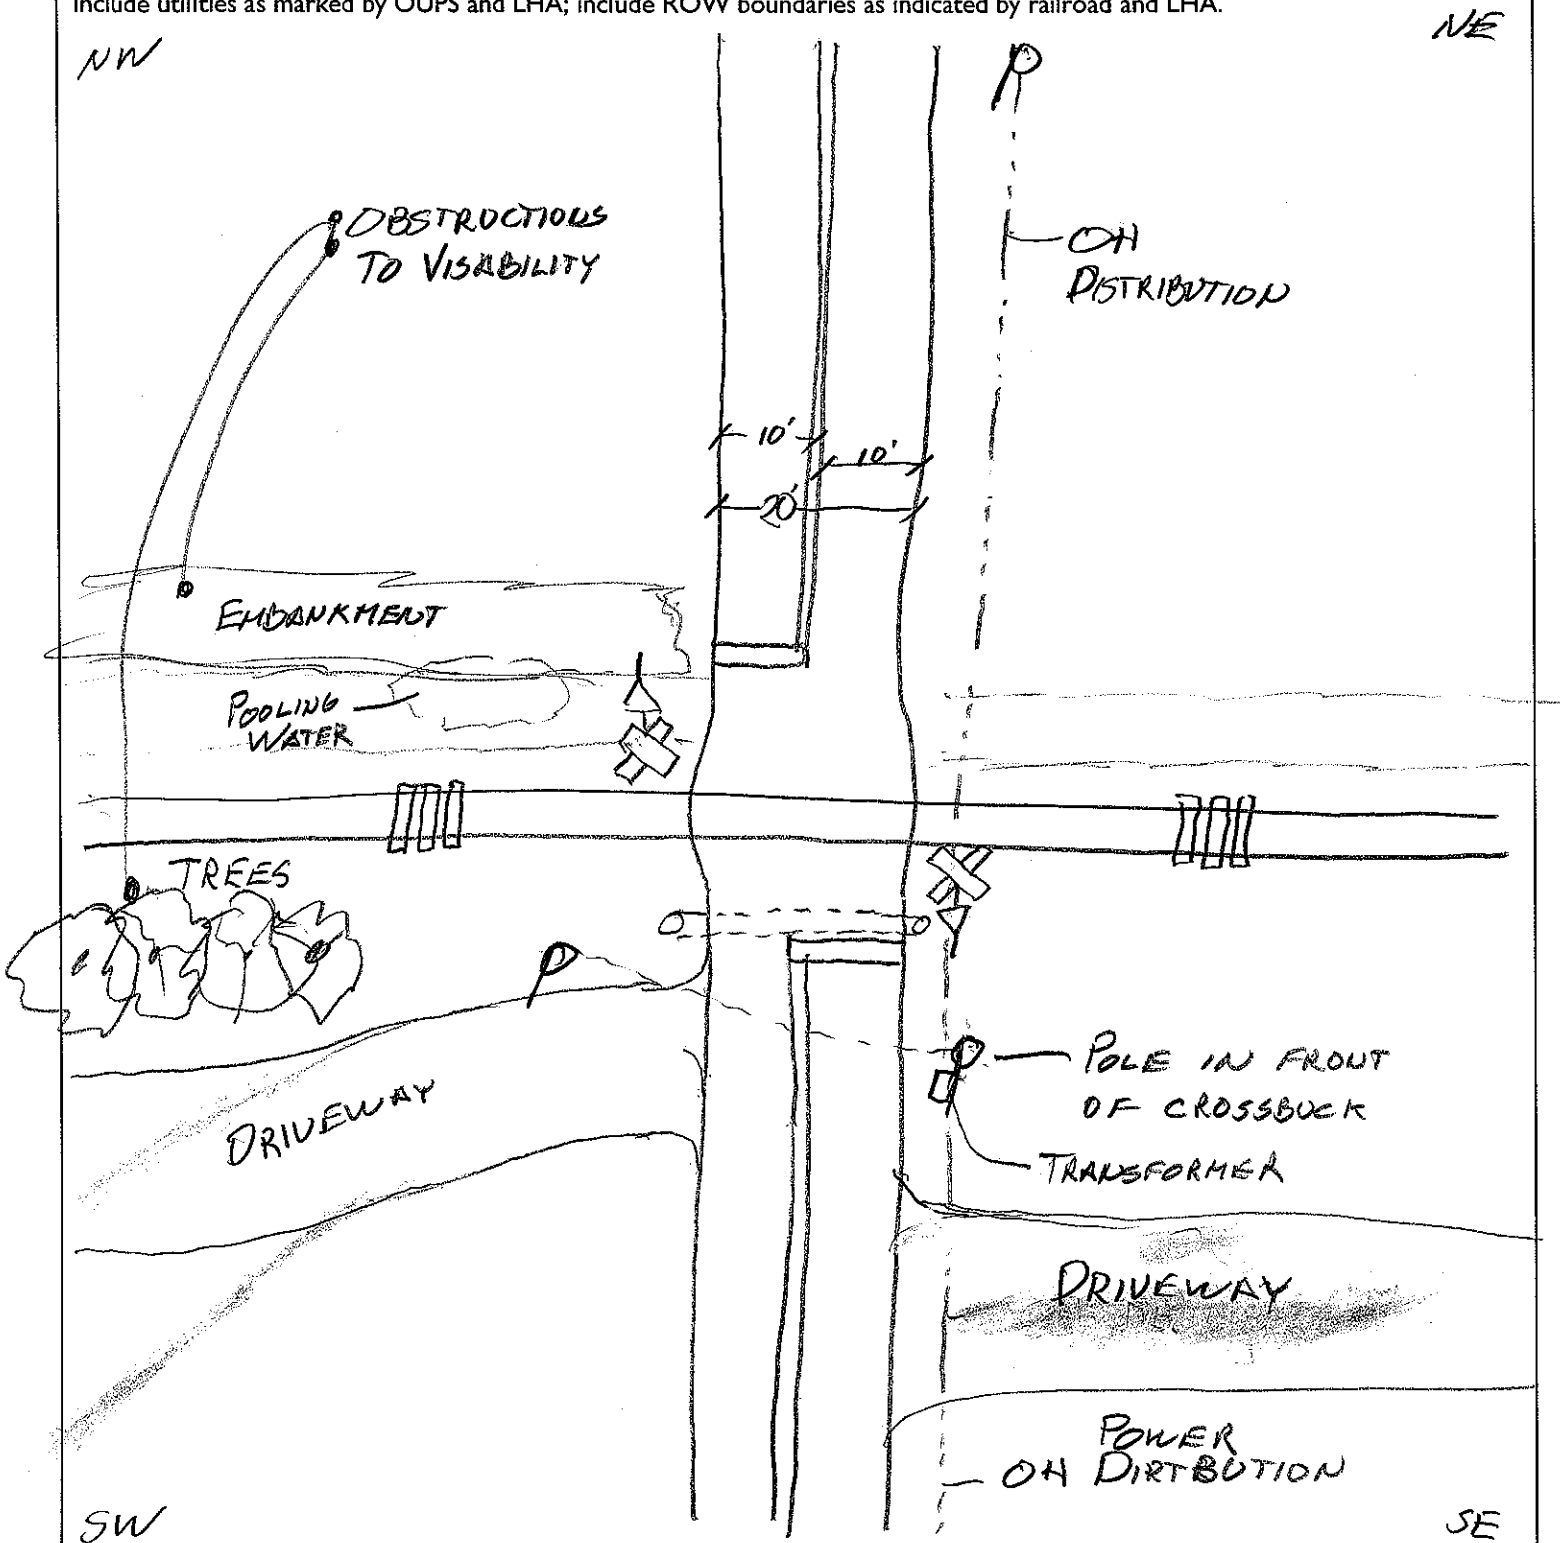 include utilities as marked by OUPS and LHA; include ROW boundaries as indicated by railroad and LHA.
NW
NE
OBSTRUCTIONS
TO VISABILITY
OH
DISTRIBUTION
10'
10'
20'
EMBANKMENT
POOLING
WATER
TREES
POLE IN FRONT
OF CROSSBUCK
DRIVEWAY
TRANSFORMER
DRIVEWAY
POWER
OH DIRTBUTION
SW
SE